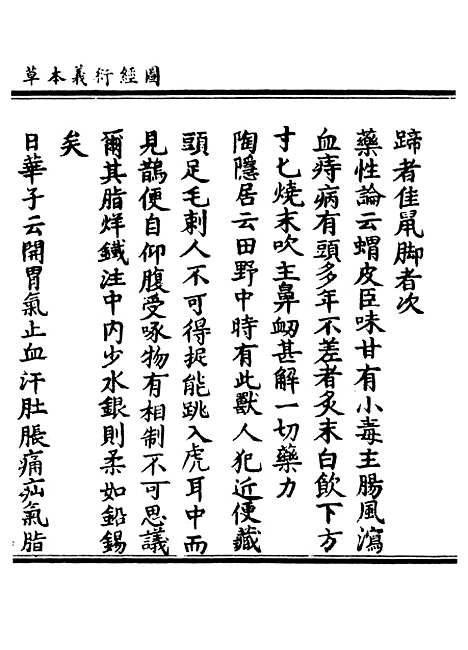 圖經衍義本草
蹄者佳鼠脚者次
藥性論云蝟皮臣味甘有小毒主腸風瀉
血痔病有頭多年不差者炙末白飲下方
寸匕燒末吹主鼻衂甚解一切藥力
陶隱居云田野中時有此獸人犯近便藏
頭足毛刺人不可得捉能跳入虎耳中而
見鵲便自仰腹受啄物有相制不可思議
爾其脂烊鐵注中内少水銀則柔如鉛錫
矣
日華子云開胃氣止血汗肚脹痛疝氣脂